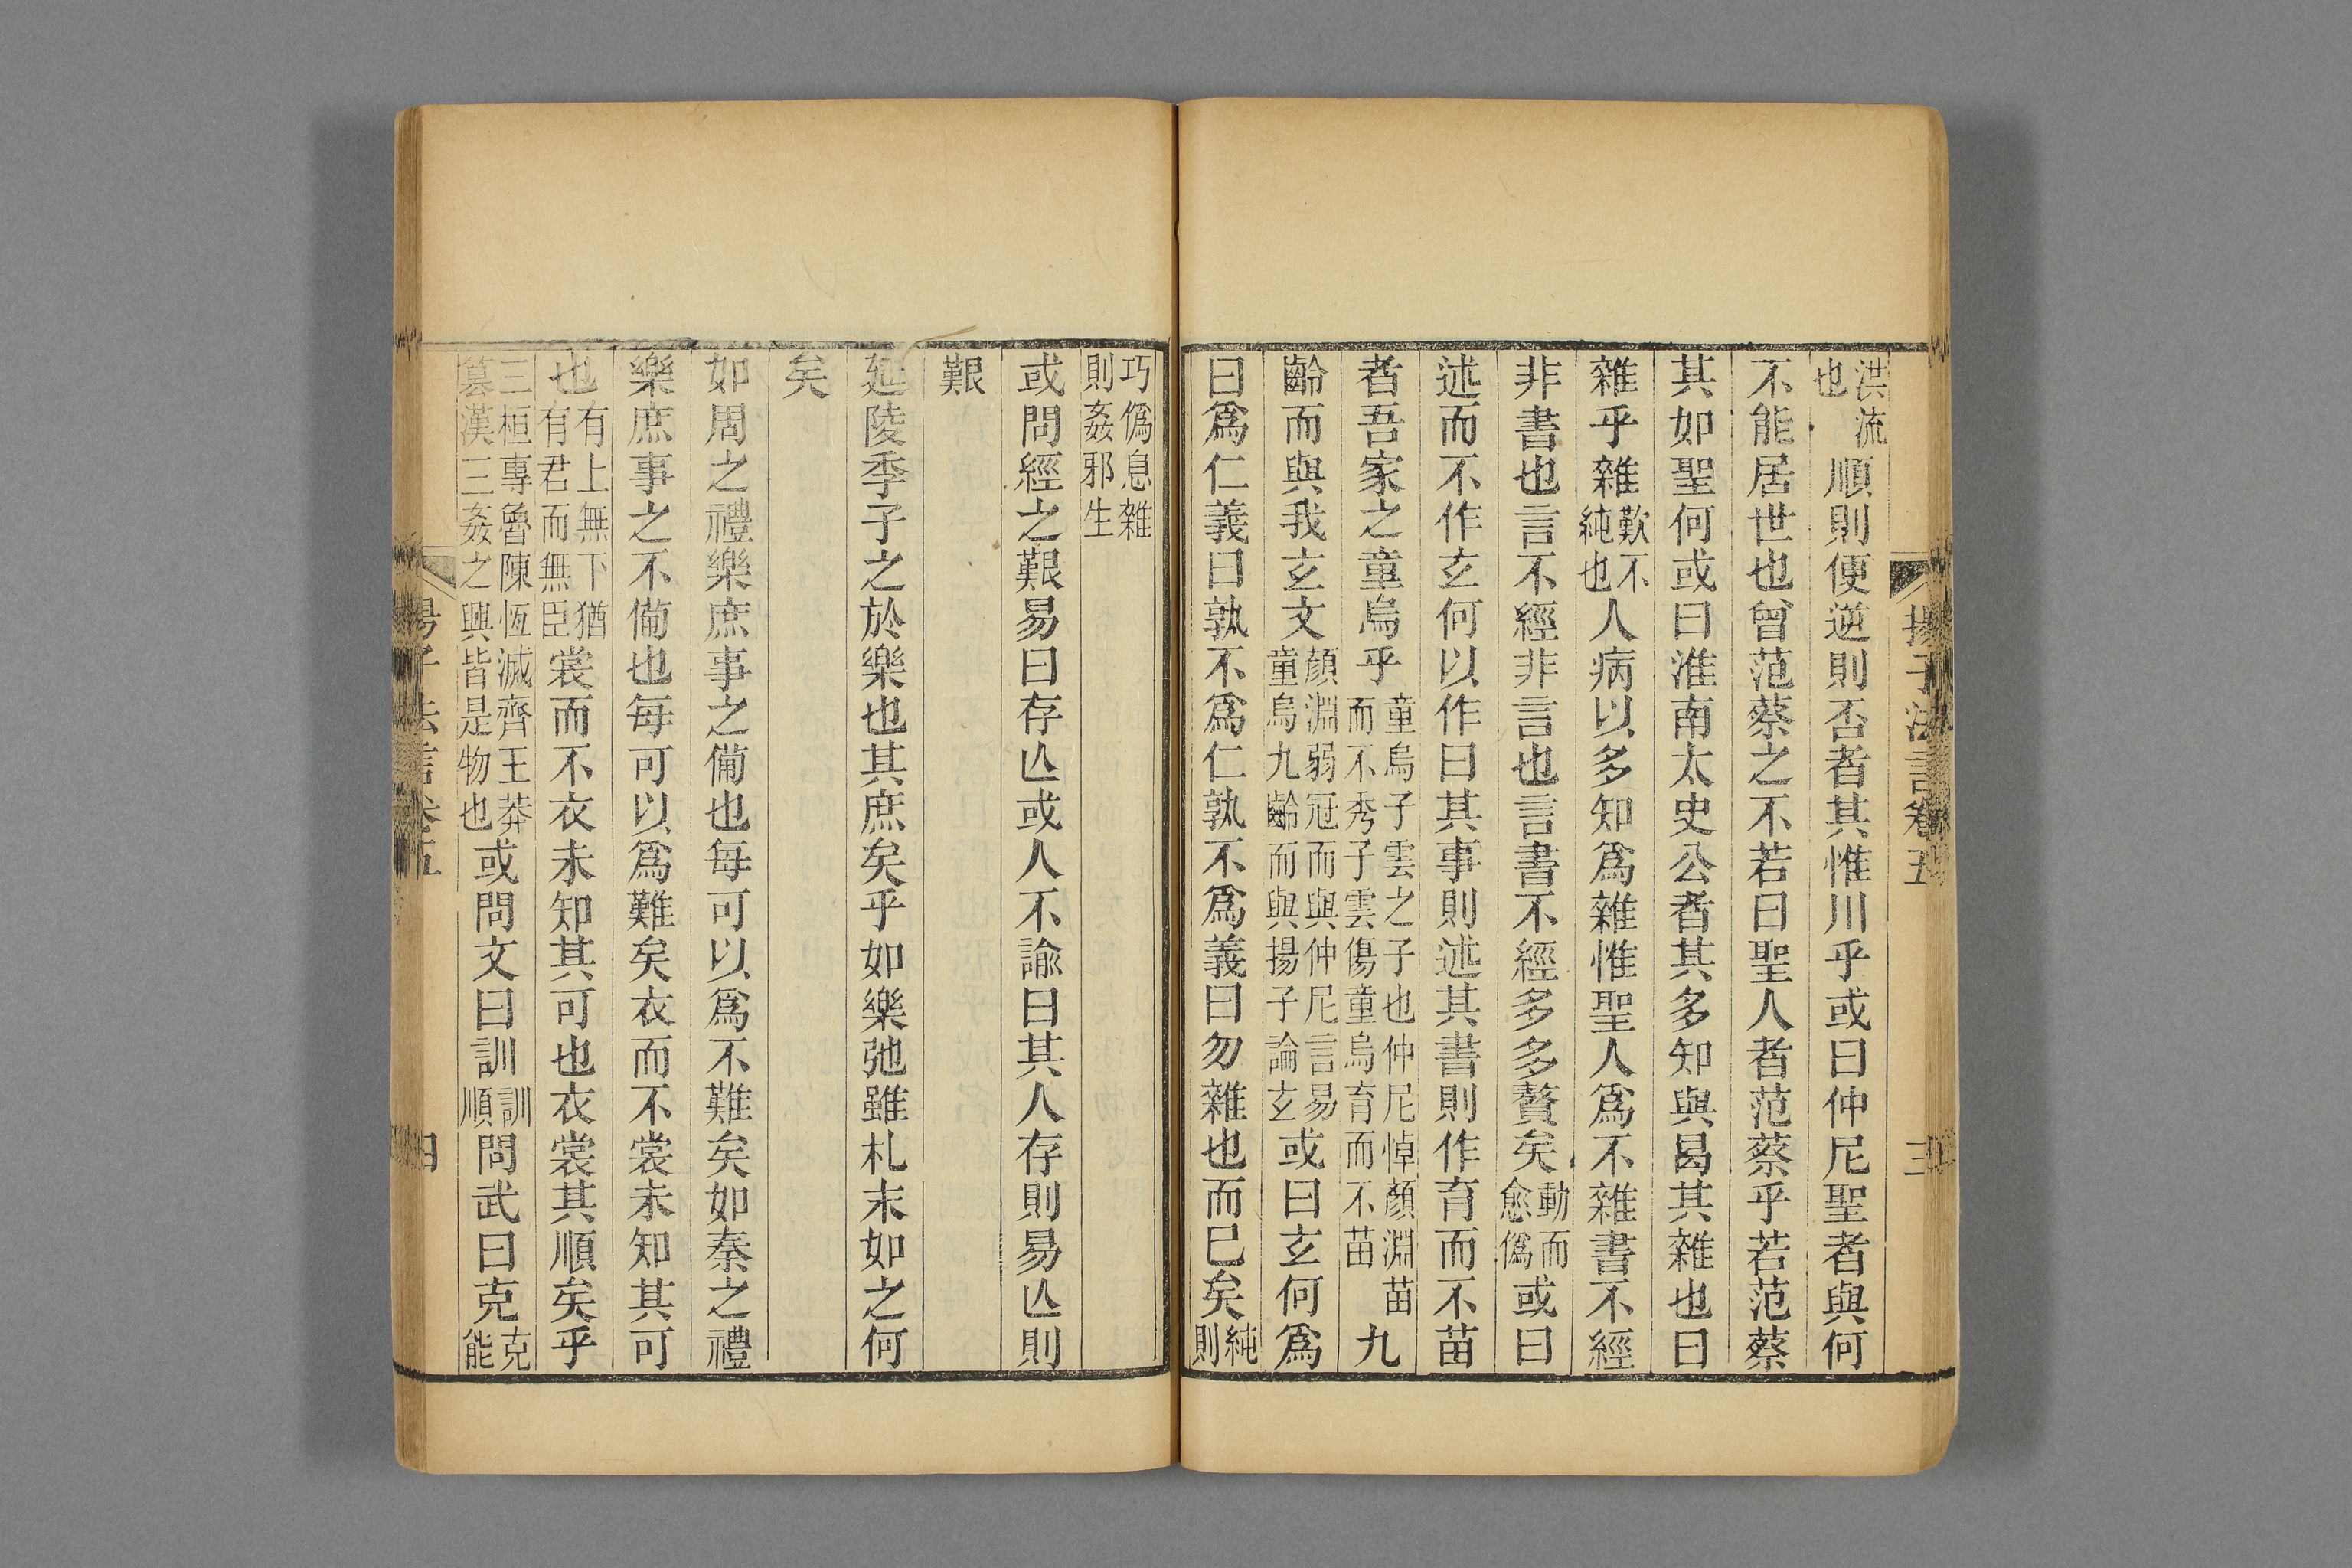 揚子法言卷五
三
洪流也順則便逆則否者其惟川乎或曰仲尼聖者與何
不能居世也曾范蔡之不若曰聖人者范蔡乎若范蔡
其如聖何或曰淮南太史公者其多知與曷其雜也曰
雜乎雜歎不純也人病以多知爲雜惟聖人爲不雜書不經
非書也言不經非言也言書不經多多贅矣動而愈僞或曰
述而不作玄何以作曰其事則述其書則作育而不苗
者吾家之童烏乎童烏子雲之子也仲尼悼顏淵苗而不秀子雲傷童烏育而不苗九
齡而與我玄文顏淵弱冠而與仲尼言易童烏九齡而與揚子論玄或曰玄何爲
曰爲仁義曰孰不爲仁孰不爲義曰勿雜也而巳矣純則
巧僞息雜則姦邪生
或問經之艱易曰存亾或人不諭曰其人存則易亾則
艱
延陵季子之於樂也其庶矣乎如樂弛雖札末如之何
矣
如周之禮樂庶事之僃也每可以爲不難矣如秦之禮
樂庶事之不僃也每可以爲難矣衣而不裳未知其可
也有上無下猶有君而無臣裳而不衣未知其可也衣裳其順矣乎
三桓專魯陳恆滅齊王莽篡漢三姦之興皆是物也或問文曰訓訓順問武曰克克能
揚子法言卷五
四